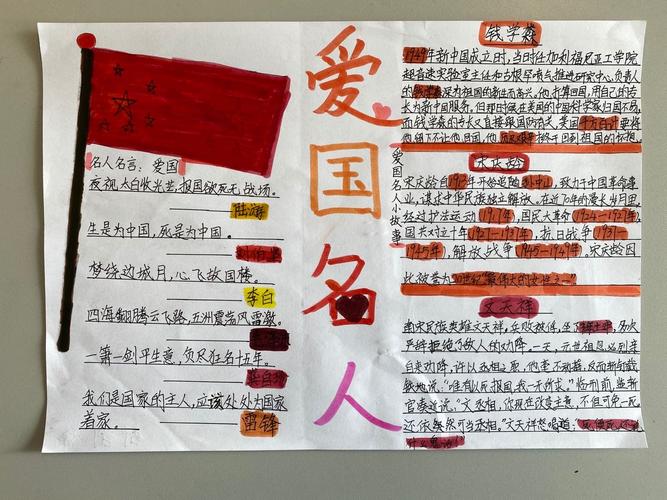 名人名言：爱国
夜视太白收光芒，报国欲死无战场。
陆游
生是为中国，死是为中国。
梦绕边城月，心飞故国楼。
李白
四海翻腾云飞路，五洲震荡风雷激。
一箫一剑平生意，负尽狂名十五年。
龚自珍
我们是国家的主人，应该处处为国家
着家。
雷锋
爱
国
名
人
爱国名人小故事
钱学森
1949年新中国成立时，当时任加利福尼亚工学院
超音速实验室主任和古根罕喷气推进研究中心负责人
的钱学森深为祖国的新生而高兴。他打算回国，用自己的专
长为新中国服务，但那时候在美国的中国科学家归国不易，
而钱学森的专长又直接跟国防有关，美国千方百计要将
他留下不让他回国，他历尽艰辛终于回到祖国的怀抱。
宋庆龄
宋庆龄自1913年开始追随孙中山，致力于中国革命事
业，谋求中华民族独立解放，在近70年的漫长岁月里，
经过护法运动（1917年），国民大革命（1924—1927年），
国共对立十年（1927—1937年），抗日战争（1931—
1945年），解放战争（1945—1949年）。宋庆龄因
此被誉为20世纪"最伟大的女性之一"
文天祥
南宋民族英雄文天祥，兵败被俘，坐
多次
严辞拒绝了敌人的劝降。一天，元世祖忽必烈亲
自来劝降，许以丞相之职，他毫不动摇，反而斩钉截
铁地说："唯有以死报国，我一无所求。"临刑前，监斩
官凑近说："文丞相，你现在改变主意，不但可免一死，
还依然可当丞相。"文天祥怒喝道：